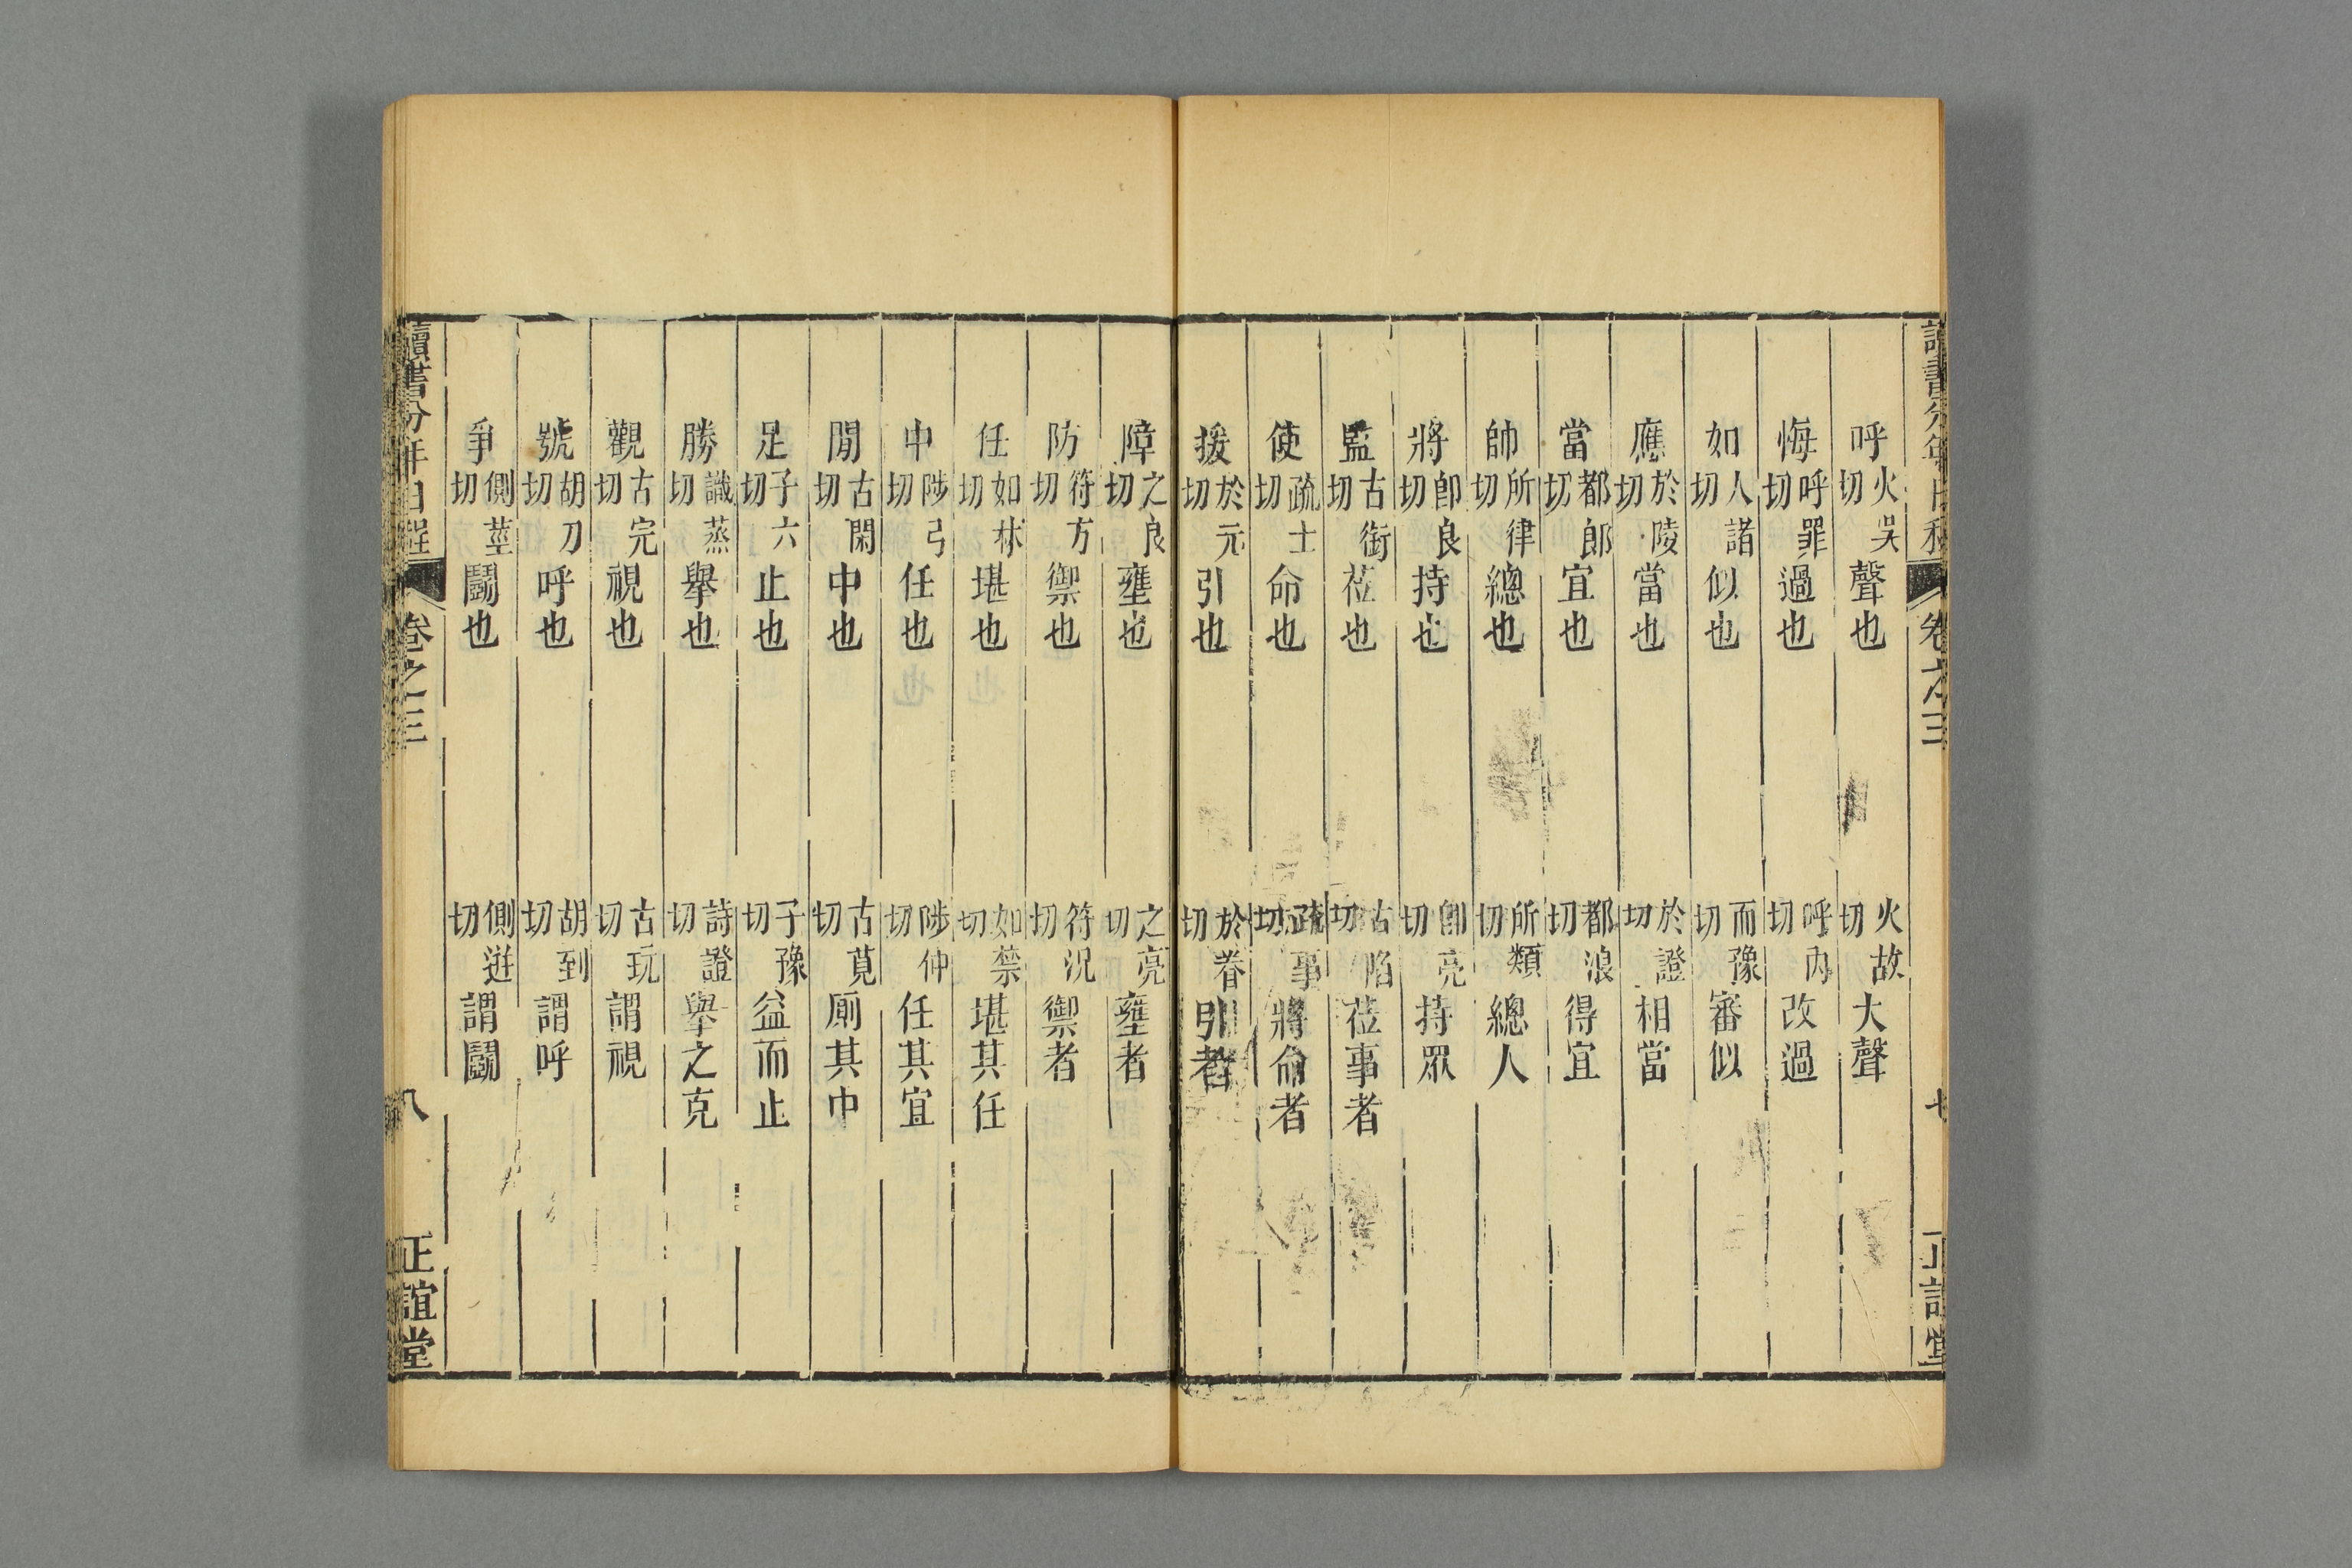 讀書分年日程 卷之三 七 正誼堂
呼火吳切聲也 火故切大聲
悔呼罪切過也 呼內切改過
如人諸切似也 而豫切審似
應於陵切當也 於證切相當
當都郎切宜也 都浪切得宜
帥所律切總也 所類切總人
將卽良切持也 卽亮切持眾
監古銜切莅也 古陷切莅事者
使疏士切命也 疏事切將命者
援於元切引也 於眷切引者
障之良切壅也 之亮切壅者
防符方切禦也 符況切禦者
任如林切堪也 如禁切堪其任
中陟弓切任也 陟仲切任其宜
閒古閑切中也 古莧切廁其中
足子六切止也 子豫切益而止
勝識蒸切舉也 詩證切舉之克
觀古完切視也 古玩切謂視
號胡刀切呼也 胡到切謂呼
爭側莖切鬭也 側迸切謂鬭
讀書分年日程 卷之三 八 正誼堂